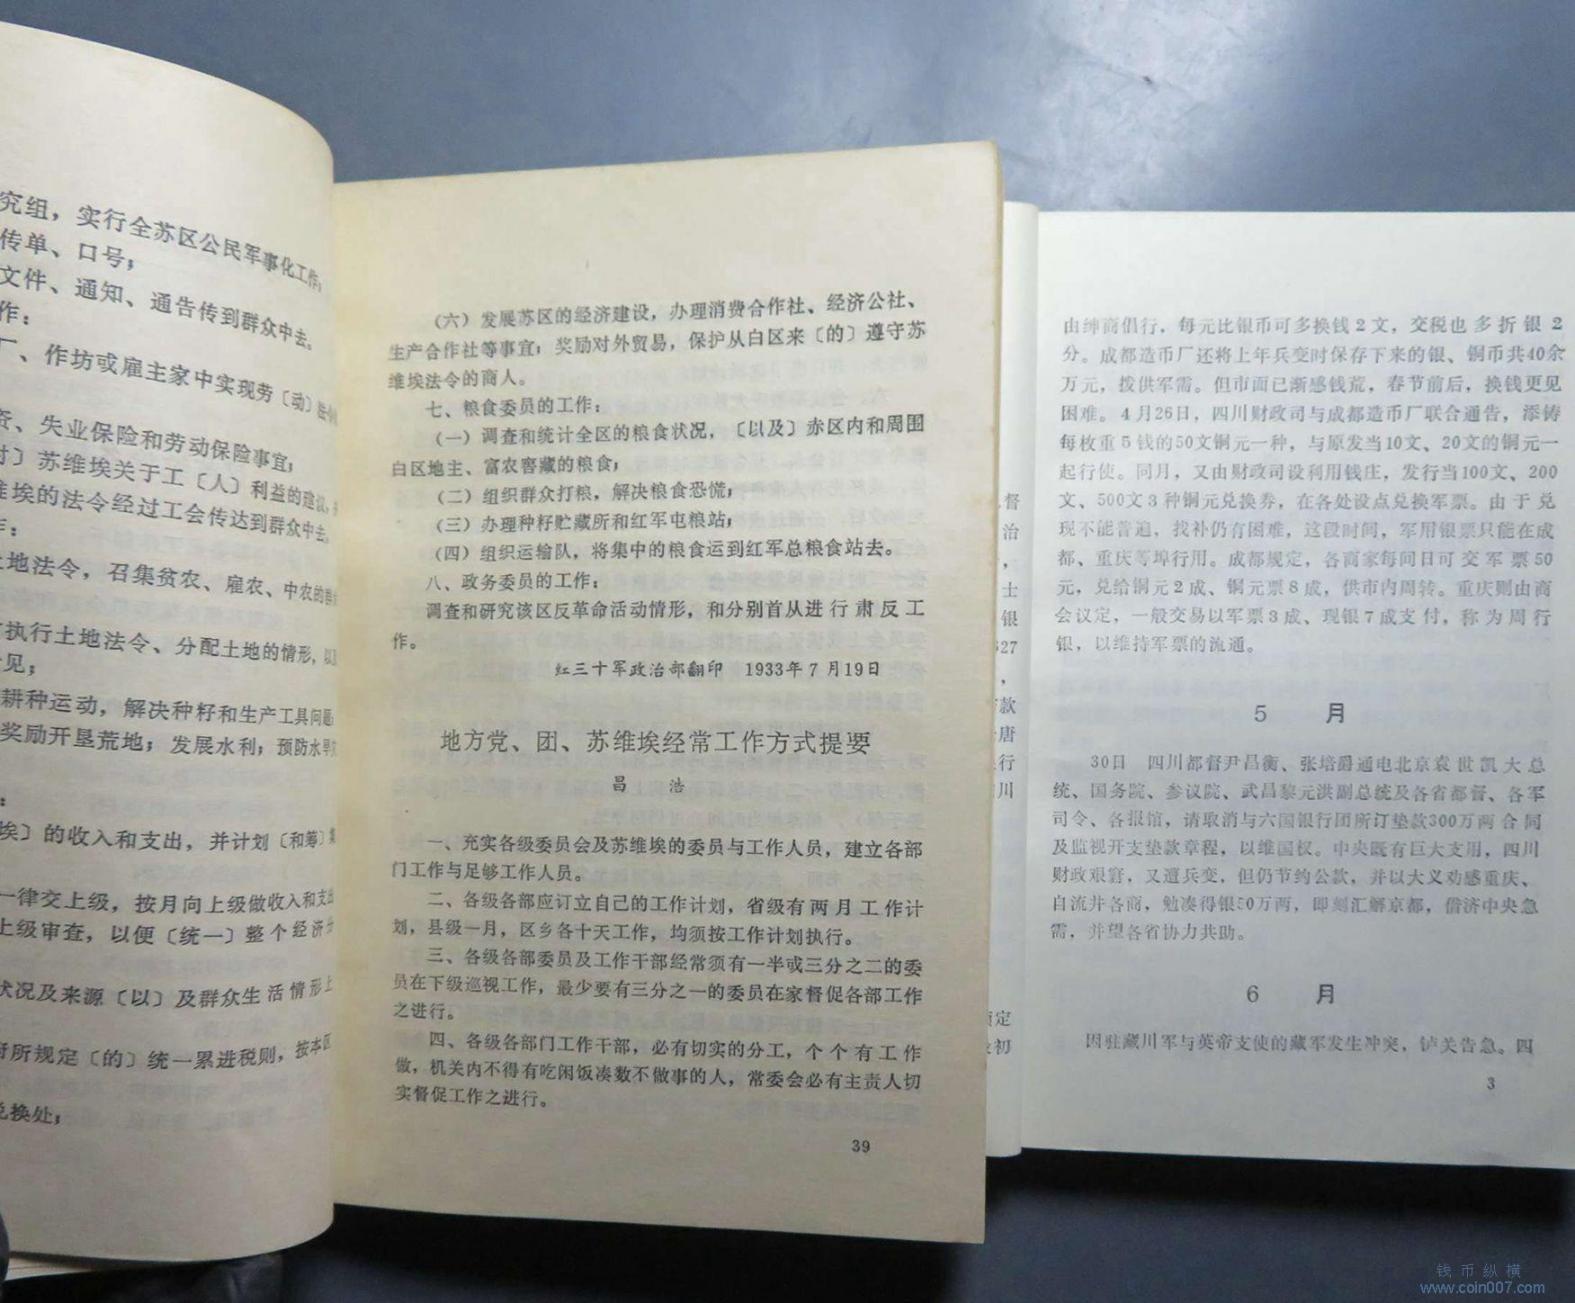 究组，实行全苏区公民军事化工作；
传单、口号；
文件、通知、通告传到群众中去。
作：
厂、作坊或雇主家中实现劳〔动〕法令
资、失业保险和劳动保险事宜；
讨〕苏维埃关于工〔人〕利益的建议，
维埃的法令经过工会传达到群众中去。
作：
土地法令，召集贫农、雇农、中农的群
执行土地法令、分配土地的情形，以
见；
耕种运动，解决种籽和生产工具问题；
奖励开垦荒地；发展水利；预防水旱
：
埃〕的收入和支出，并计划〔和筹〕
一律交上级，按月向上级做收入和支出
上级审查，以便〔统一〕整个经济
状况及来源〔以〕及群众生活情形上
府所规定〔的〕统一累进税则，按本区
兑换处；
（六）发展苏区的经济建设，办理消费合作社、经济公社、
生产合作社等事宜；奖励对外贸易，保护从白区来〔的〕遵守苏
维埃法令的商人。
七、粮食委员的工作：
（一）调查和统计全区的粮食状况，〔以及〕赤区内和周围
白区地主、富农窖藏的粮食；
（二）组织群众打粮，解决粮食恐慌；
（三）办理种籽贮藏所和红军屯粮站；
（四）组织运输队，将集中的粮食运到红军总粮食站去。
八、政务委员的工作：
调查和研究该区反革命活动情形，和分别首从进行肃反工
作。
红三十军政治部翻印　1933年7月19日
地方党、团、苏维埃经常工作方式提要
昌　浩
一、充实各级委员会及苏维埃的委员与工作人员，建立各部
门工作与足够工作人员。
二、各级各部应订立自己的工作计划，省级有两月工作计
划，县级一月，区乡各十天工作，均须按工作计划执行。
三、各级各部委员及工作干部经常须有一半或三分之二的委
员在下级巡视工作，最少要有三分之一的委员在家督促各部工作
之进行。
四、各级各部门工作干部，必有切实的分工，个个有工作
做，机关内不得有吃闲饭凑数不做事的人，常委会必有主责人切
实督促工作之进行。
39
督
治
，
士
银
327
，
款
唐
行
川
定
初
由绅商倡行，每元比银币可多换钱2文，交税也多折银2
分。成都造币厂还将上年兵变时保存下来的银、铜币共40余
万元，拨供军需。但市面已渐感钱荒，春节前后，换钱更见
困难。4月26日，四川财政司与成都造币厂联合通告，添铸
每枚重5钱的50文铜元一种，与原发当10文、20文的铜元一
起行使。同月，又由财政司设利用钱庄，发行当100文、200
文、500文3种铜元兑换券，在各处设点兑换军票。由于兑
现不能普遍，找补仍有困难，这段时间，军用银票只能在成
都、重庆等埠行用。成都规定，各商家每间日可交军票50
元，兑给铜元2成、铜元票8成，供市内周转。重庆则由商
会议定，一般交易以军票3成、现银7成支付，称为周行
银，以维持军票的流通。
5　月
30日　四川都督尹昌衡、张培爵通电北京袁世凯大总
统、国务院、参议院、武昌黎元洪副总统及各省都督、各军
司令、各报馆，请取消与六国银行团所订垫款300万两合同
及监视开支垫款章程，以维国权。中央既有巨大支用，四川
财政艰窘，又遭兵变，但仍节约公款，并以大义劝感重庆、
自流井各商，勉凑得银50万两，即刻汇解京都，借济中央急
需，并望各省协力共助。
6　月
因驻藏川军与英帝支使的藏军发生冲突，铲关告急。四
3
钱币纵横
www.coin007.com